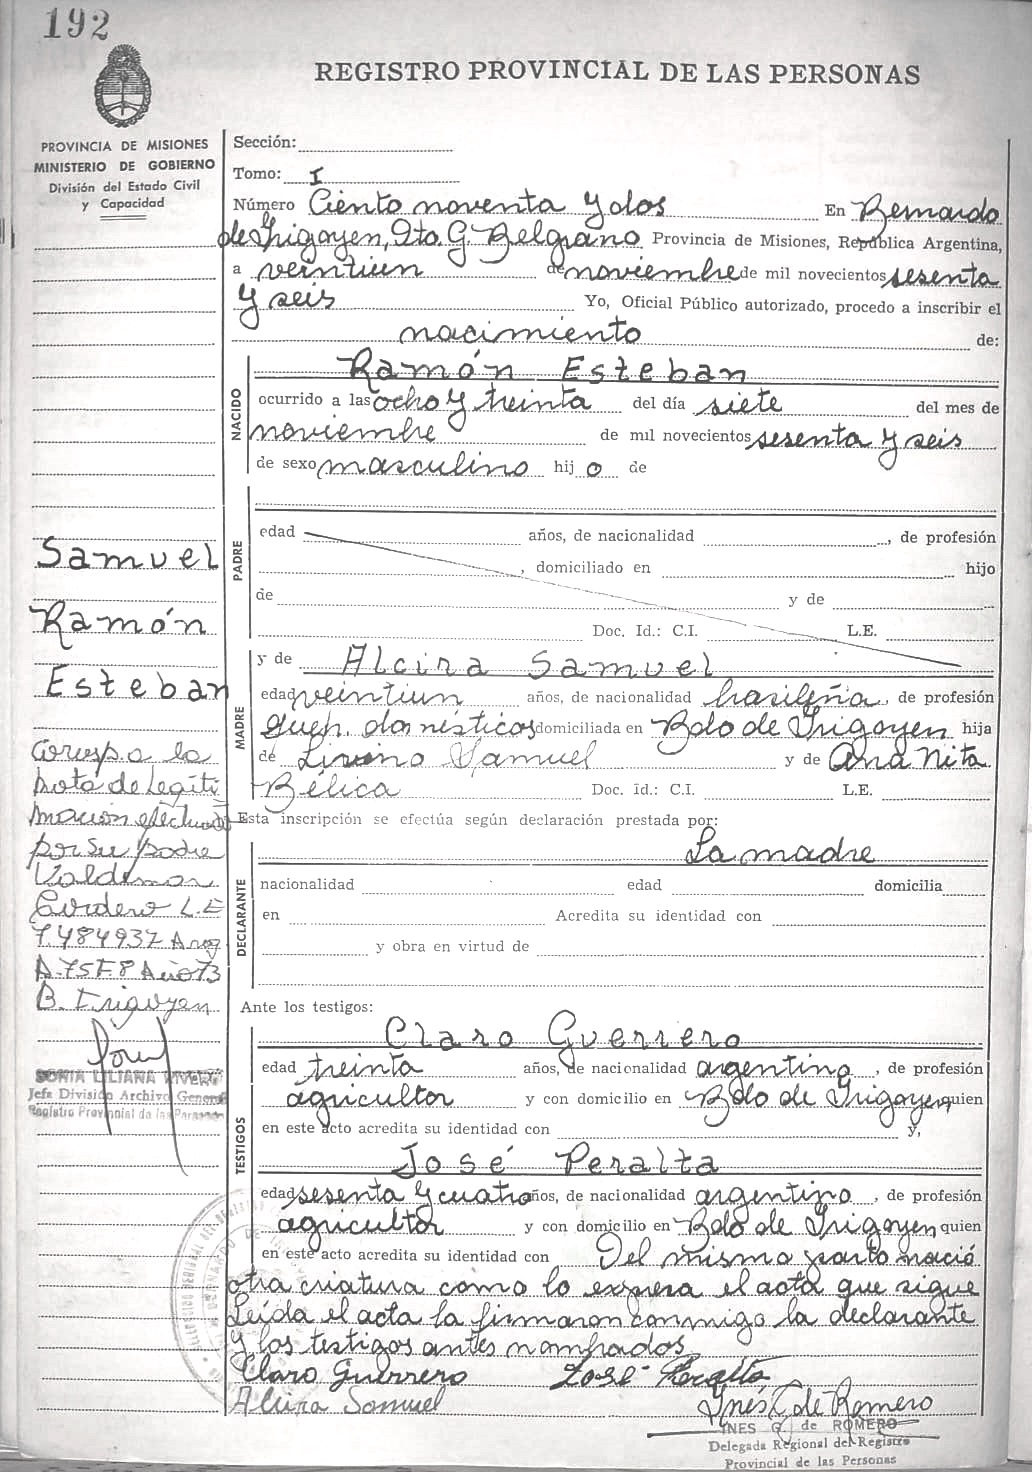 192
REGISTRO PROVINCIAL DE LAS PERSONAS
PROVINCIA DE MISIONES
MINISTERIO DE GOBIERNO
División del Estado Civil
y Capacidad
Samuel
Ramón
Esteban
Corresp a la
nota de Legiti
mación efectuada
por su padre
Valdemar
Cordero L.E
7.484937
A. 75 F 8 Año 73
B. Irigoyen
SONIA LILIANA VIVERO
Jefa División Archivo General
Registro Provincial de las Personas
Sección:
Tomo: I
Número Ciento noventa y dos En Bernardo
de Irigoyen, Dto. G. Belgrano Provincia de Misiones, República Argentina,
a veintiun de noviembre de mil novecientos sesenta
y seis Yo, Oficial Público autorizado, procedo a inscribir el
nacimiento de:
NACIDO
Ramón Esteban
ocurrido a las ocho y treinta del día siete del mes de
noviembre de mil novecientos sesenta y seis
de sexo masculino hijo de
PADRE
edad años, de nacionalidad , de profesión
, domiciliado en hijo
de y de
Doc. Id.: C.I. L.E.
MADRE
y de Alcira Samuel
edad veintiun años, de nacionalidad brasileña, de profesión
queh. domésticos domiciliada en Bdo de Irigoyen hija
de Livino Samuel y de Ana Nita
Bélica Doc. id.: C.I. L.E.
Esta inscripción se efectúa según declaración prestada por:
DECLARANTE
La madre
nacionalidad edad domicilia
en Acredita su identidad con
y obra en virtud de
Ante los testigos:
TESTIGOS
Claro Guerrero
edad treinta años, de nacionalidad argentino, de profesión
agricultor y con domicilio en Bdo de Irigoyen quien
en este acto acredita su identidad con y,
José Peralta
edad sesenta y cuatro años, de nacionalidad argentino, de profesión
agricultor y con domicilio en Bdo de Irigoyen, quien
en este acto acredita su identidad con Del mismo parto nació
otra criatura como lo expresa el acta que sigue
Leída el acta la firmaron conmigo la declarante
y los testigos antes nombrados.
Claro Guerrero José Peralta
Alcira Samuel Inés G. de Romero
INES G. de ROMERO
Delegada Regional del Registro
Provincial de las Personas